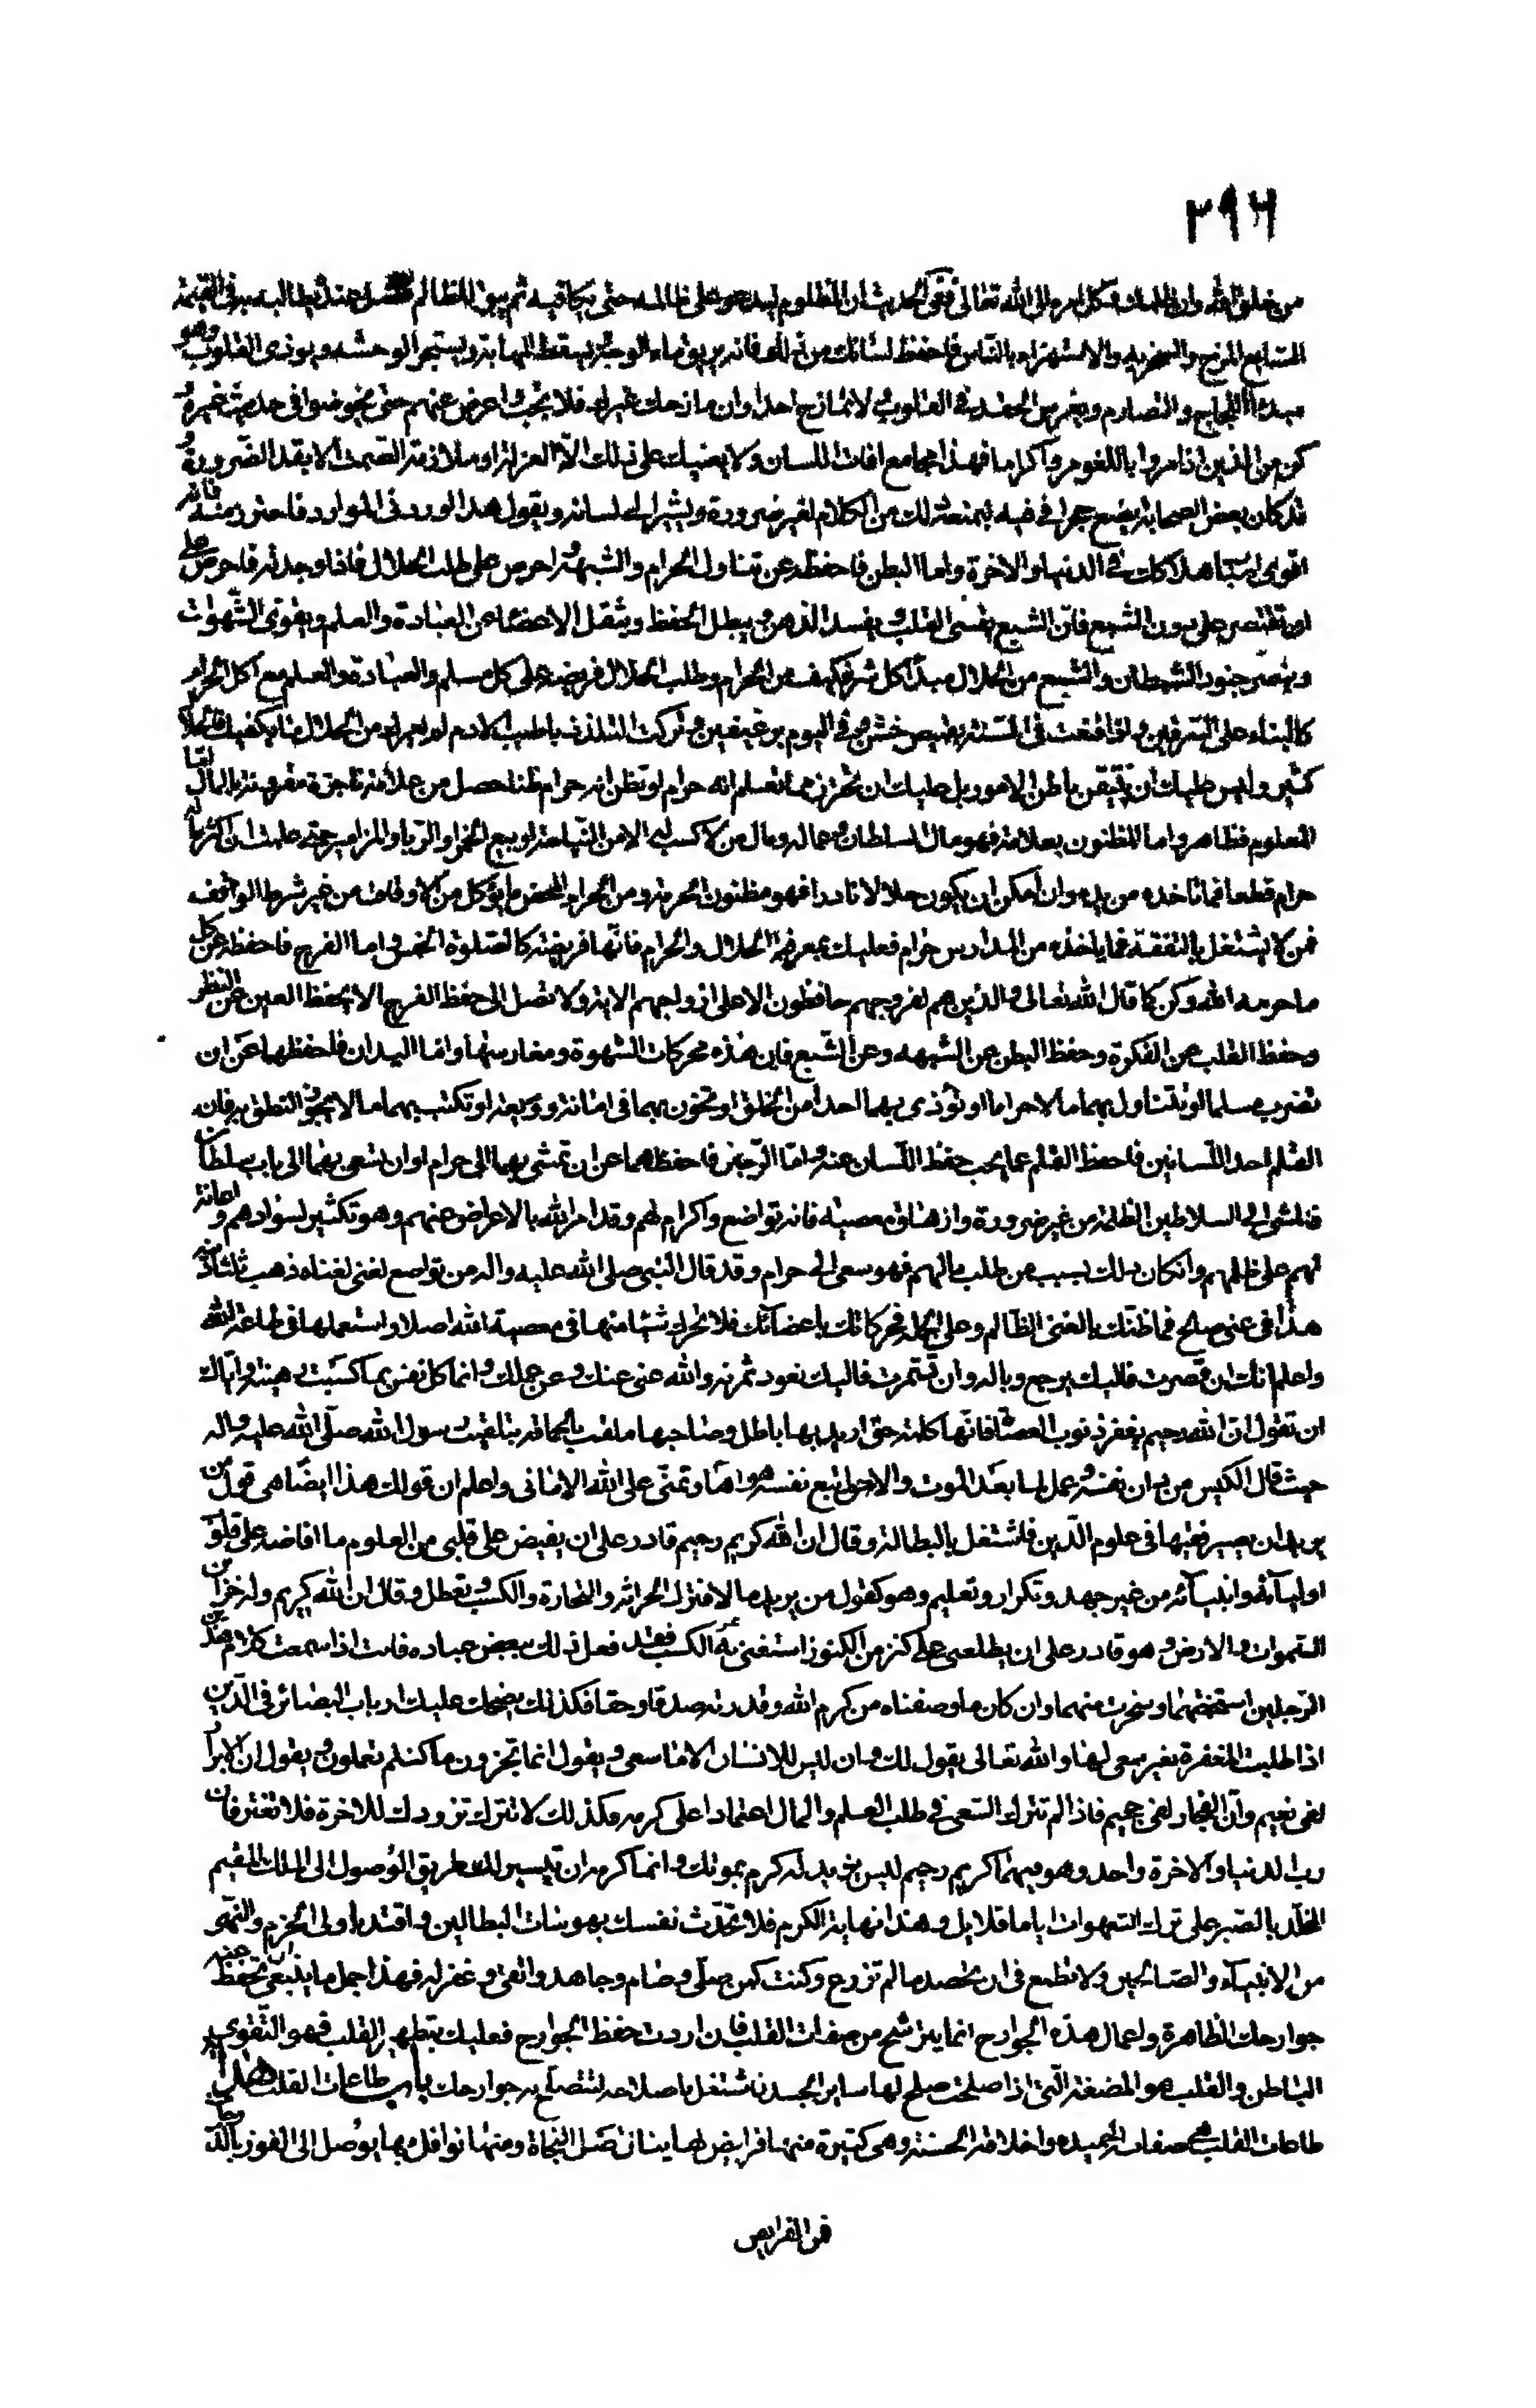 ٢٩٦
من خلق الله وان ظلمك فكل امره الى الله تعالى ففى الحديث ان المظلوم ليدعو على ظالمه حتى يكافيه ثم يبقى للظالم فضل عنده يطالبه به فى القيمة
السابع المزح والسخريه والاستهزاء بالناس فاحفظ لسانك من ذلك فانه يريق ماء الوجه ويسقط المهابة ويستجر الوحشه ويوذى القلوب وهو
مبدء اللجاج والتصارم ويغرس الحقد فى القلوب لا تمازح احدا وان مازحك غيرك فلا تجب واعرض عنهم حتى يخوضوا فى حديث غيره و
كن من الذين اذا مروا باللغو مروا كراما فهذا مجامع افات اللسان ولا يعينك على ذلك الا العزلة او ملازمة الصمت الا بقدر الضرورة و
قد كان بعض الصحابة يضع حجرا فى فيه ليمنعه ذلك من الكلام لغير ضرورة ويشير الى لسانه ويقول هذا اوردنى الموارد فاحترز منه فانه
اقوى اسباب هلاكك فى الدنيا والاخرة واما البطن فاحفظه عن تناول الحرام والشبهة واحرص على طلب الحلال فاذا وجدته فاحرص على
ان تقتصر على دون الشبع فان الشبع يقسى القلب ويفسد الذهن ويبطل الحفظ ويثقل الاعضاء عن العبادة والعلم ويقوى الشهوات
وينصر جنود الشيطان والشبع من الحلال مبدأ كل شر فكيف من الحرام وطلب الحلال فريضة على كل مسلم والعبادة والعلم مع اكل الحرام
كالبناء على السرقين واذا قنعت فى السنة بقميص خشن وفى اليوم برغيفين وتركت التلذذ باطيب الادم لم يعوزك من الحلال ما يكفيك فالحلال
كثير وليس عليك ان تتيقن باطن الامور بل عليك ان تحترز مما تعلم انه حرام او تظن انه حرام ظنا حصل من علامة ناجزة مقرونة بالمال اما
المعلوم فظاهر واما المظنون بعلامة فهو مال السلطان وعماله ومال من لا كسب له الا من النياحة او بيع الخمر او الربا والمزامير حتى علمت ان اكثر ماله
حرام قطعا فما تاخذه من يده وان امكن ان يكون حلالا نادرا فهو مظنون الحرمة ومن الحرام المحض ما يؤكل من الاوقاف من غير شرط الواقف
فمن لا يشتغل بالتفقه فما ياخذه من المدارس حرام فعليك بمعرفة الحلال والحرام فانها فريضة كالصلوة الخمس واما الفرج فاحفظه عن كل
ما حرمه الله وكن كما قال الله تعالى والذين هم لفروجهم حافظون الا على ازواجهم الاية ولا تصل الى حفظ الفرج الا بحفظ العين عن النظر
وحفظ القلب عن الفكرة وحفظ البطن عن الشبهه وعن الشبع فان هذه محركات الشهوة ومغارسها واما اليدان فاحفظهما عن ان
تضرب مسلما او تتناول بهما مالا حراما او توذى بهما احدا من الخلق او تخون بهما فى امانة ووديعة او تكتب بهما ما لا يجوز النطق به فان
القلم احد اللسانين فاحفظ القلم عما يجب حفظ اللسان عنه واما الرجلين فاحفظهما عن ان تمشى بهما الى حرام او ان تسعى بهما الى باب سلطان
فالمشى الى السلاطين الظلمة من غير ضرورة وازهاق معصية فانه تواضع واكرام لهم وقد امر الله بالاعراض عنهم وهو تكثير لسوادهم و اعانة
لهم على ظلمهم وان كان ذلك بسبب من طلب مالهم فهو سعى الى حرام وقد قال النبى صلى الله عليه واله من تواضع لغنى لغناه ذهب ثلثا دينه
هذا فى غنى صالح فما ظنك بالغنى الظالم وعلى الجملة فحركاتك باعضائك فلا تحرك شيئا منها فى معصية الله اصلا واستعملها فى طاعة الله
واعلم انك ان قصرت فاليك يرجع وباله وان شمرت فاليك تعود ثمرته والله غنى عنك وعن عملك وانما كل نفس بما كسبت رهينة واياك
ان تقول ان الله رحيم يغفر ذنوب العصاة فانها كلمة حق اريد بها باطل وصاحبها ملقب بالحماقة بتلقيب رسول الله صلى الله عليه واله
حيث قال الكيس من دان نفسه وعمل لما بعد الموت والاحمق اتبع نفسه هواها وتمنى على الله الامانى واعلم ان قولك هذا ايضاهى قول من
يريد ان يصير فقيها فى علوم الدين فاشتغل بالبطالة وقال ان الله كريم رحيم قادر على ان يفيض على قلبى من العلوم ما افاضه على قلوب
اوليائه وانبيائه من غير جهد وتكرار وتعليم وهو كقول من يريد مالا فترك الحراثة والتجارة والكسب وتعطل وقال ان الله كريم وله خزائن
السموات والارض وهو قادر على ان يطلعنى على كنز من الكنوز استغنى به عن الكسب فقد فعل ذلك ببعض عباده فانت اذا سمعت كلام هذين
الرجلين استحمقتهما وسخرت منهما وان كان ما وصفناه من كرم الله وقدرته صدقا وحقا فكذلك يضحك عليك ارباب البصائر فى الدين
اذا طلبت المغفرة بغير سعى لها والله تعالى يقول لك وان ليس للانسان الا ما سعى ويقول انما تجزون ما كنتم تعملون ويقول ان الابرار
لفى نعيم وان الفجار لفى جحيم فاذا لم تترك السعى فى طلب العلم والمال اعتمادا على كرمه فكذلك لا تترك تزودك للاخرة فلا تغتر فان
رب الدنيا والاخرة واحد وهو فيهما كريم رحيم ليس يزيد له كرم بموتك وانما كرمه ان تيسير لك طريق الوصول الى الملك المقيم
المخلد بالصبر على ترك الشهوات اياما قلايل وهذا نهاية الكرم فلا تحدث نفسك بهوسات البطالين واقتد باولى الحزم والنهى
من الانبياء والصالحين ولا تطمع فى ان تحصد ما لم تزرع وكنت كمن صلى وصام وجاهد واتقى وغفر له فهذا جمل ما ينبغى ان تحفظ عنه
جوارحك الظاهرة واعمال هذه الجوارح انما يترشح من صفات القلب فان اردت حفظ الجوارح فعليك بتطهير القلب فهو التقوى
الباطن والقلب هو المضغة التى اذا صلحت صلح لها ساير الجسد فاشتغل باصلاحه لتصلح به جوارحك طاعات القلب
طاعات القلب صفاته الحميده واخلاقه الحسنة وهى كثيرة منها فرايض لها ينال اصل النجاة ومنها نوافل بها يوصل الى الفوز
فمن الفرايض